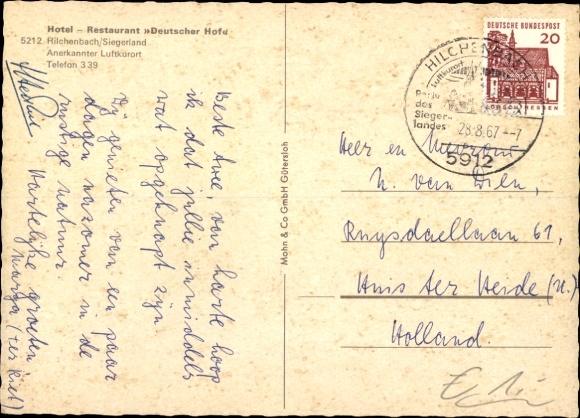 Hotel – Restaurant »Deutscher Hof«
5212 Hilchenbach/Siegerland
Anerkannter Luftkurort
Telefon 339
Beste Awie, van harte hoop
ik dat jullie inmiddels
wat opgeknapt zijn
Wij genieten van een paar
dagen nazomer in de
rustige natuur.
Hartelijke groeten
Marga (ter Riet)
Mohn & Co GmbH Gütersloh
DEUTSCHE BUNDESPOST
20
LORSCH/HESSEN
HILCHENBACH
Luftkurort
Perle
des
Sieger-
landes
28.8.67 –7
5912
Heer en Mevrouw
H. van Dien,
Ruysdaellaan 61,
Huis ter Heide (U.)
Holland.